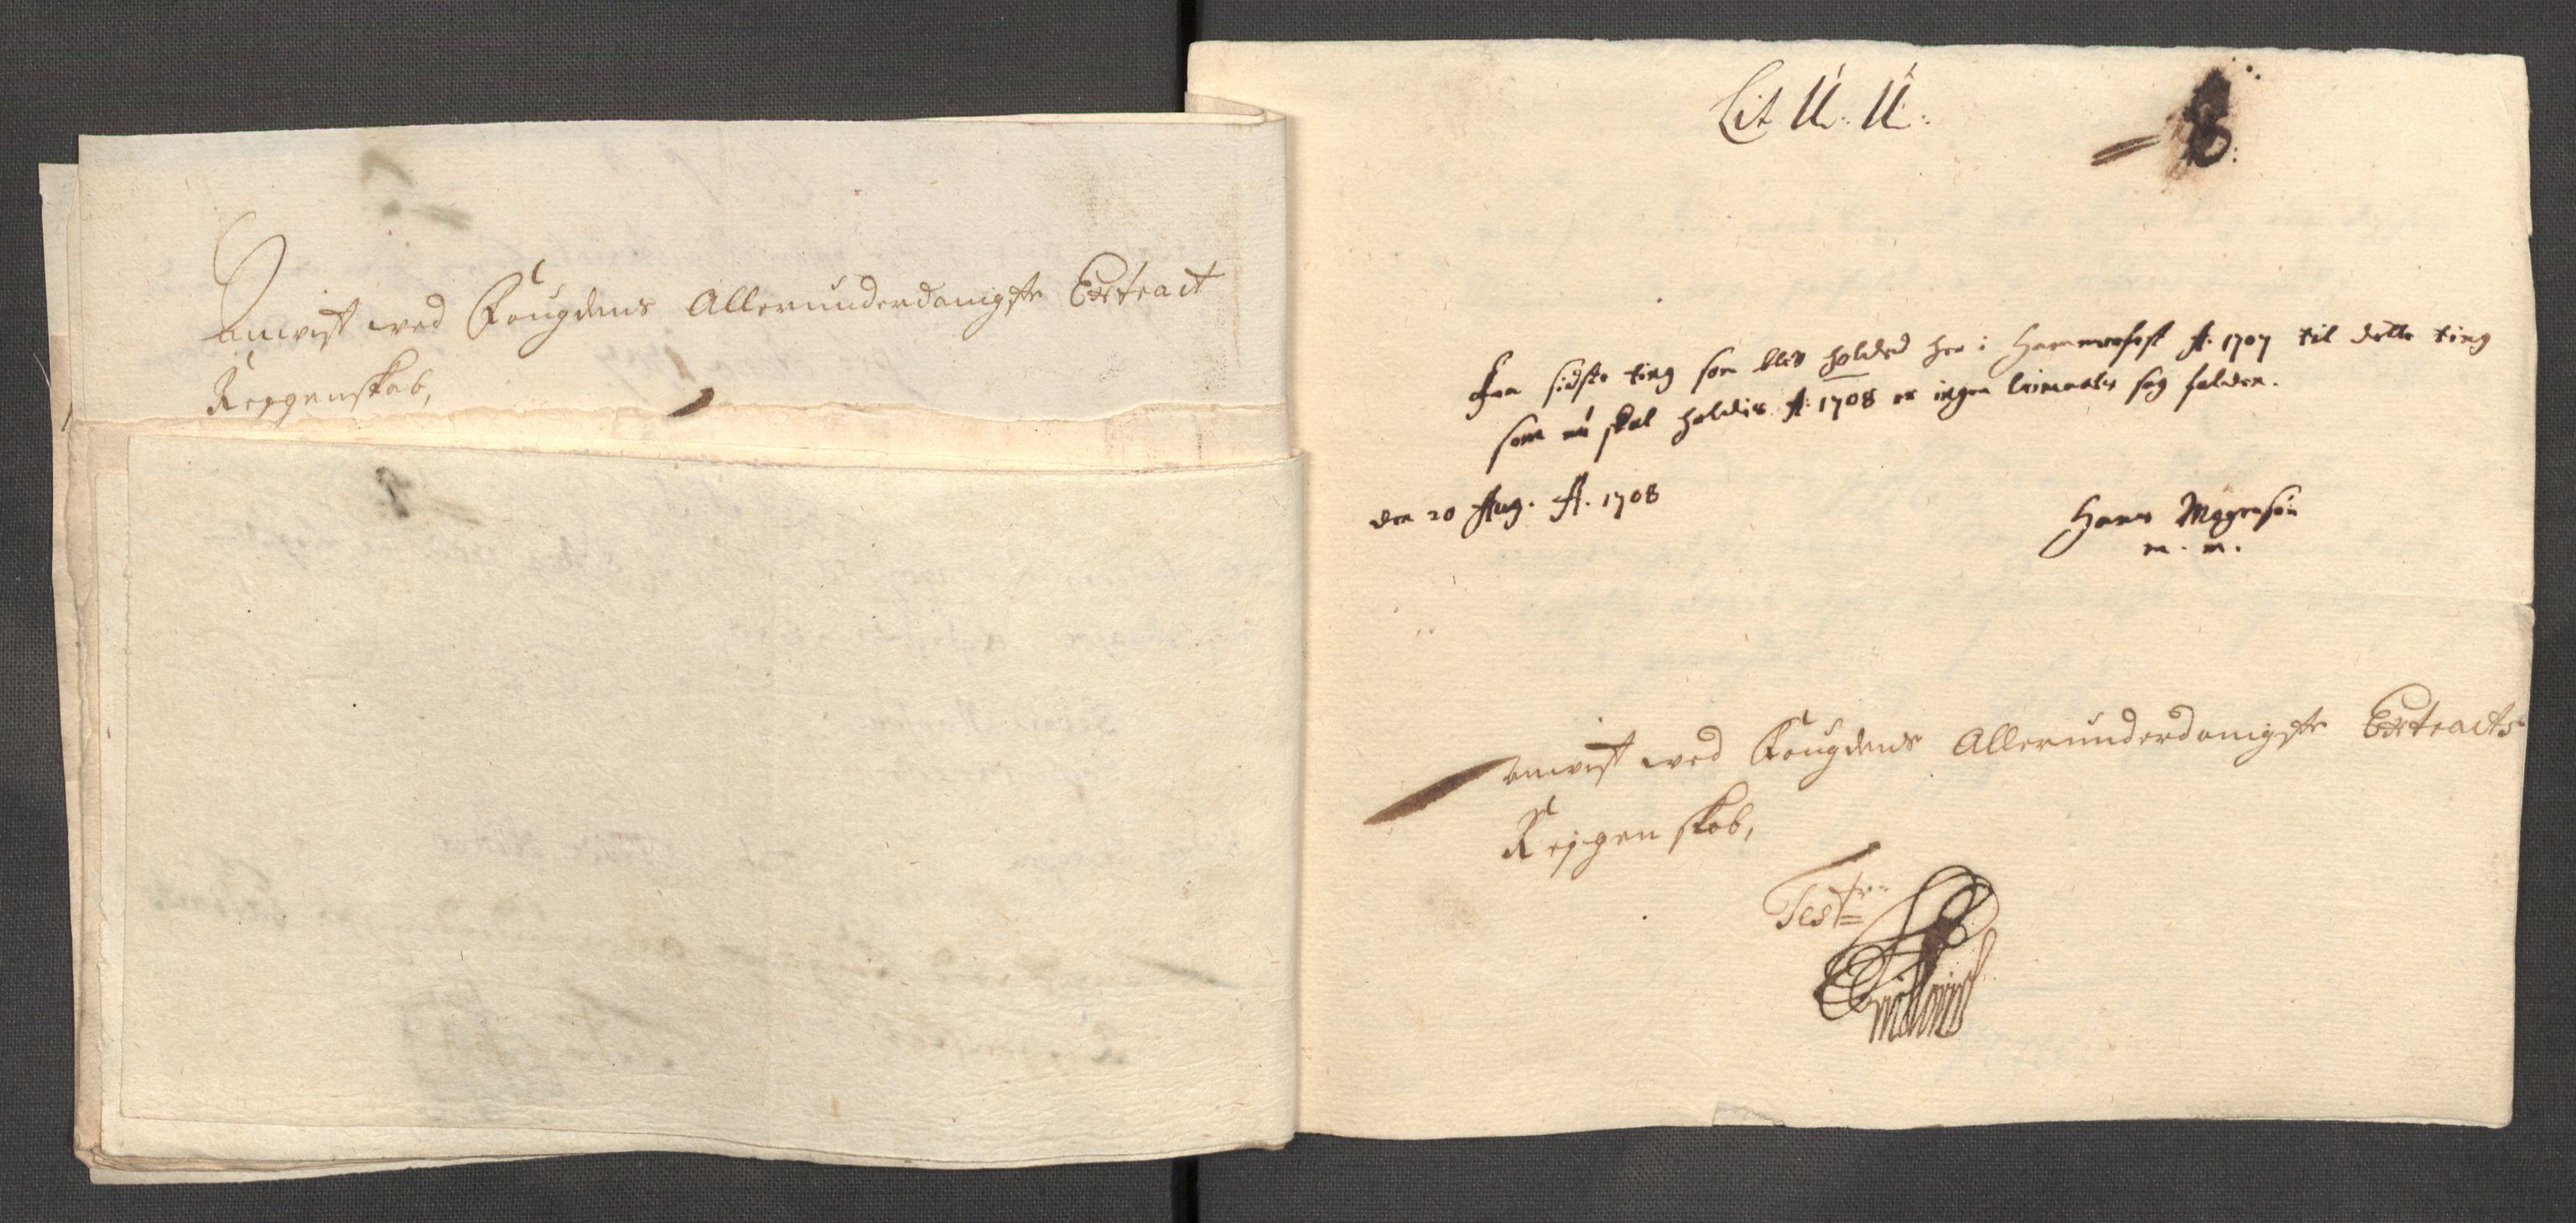 anvist ved Fougdens Allerunderdanigste Extract
Regenskab,
Lit. U. U.
Fra sidste ting som blev holded her i Hammerfest A: 1707 til dette ting
som nu skal holdis A: 1708 er ingen Criminalis sag falden.
den 20 Aug. A. 1708
Hans Mogensøn
m. m.
anvist ved Fougdens Allerunderdanigste Extracts
Regenskab,
Test